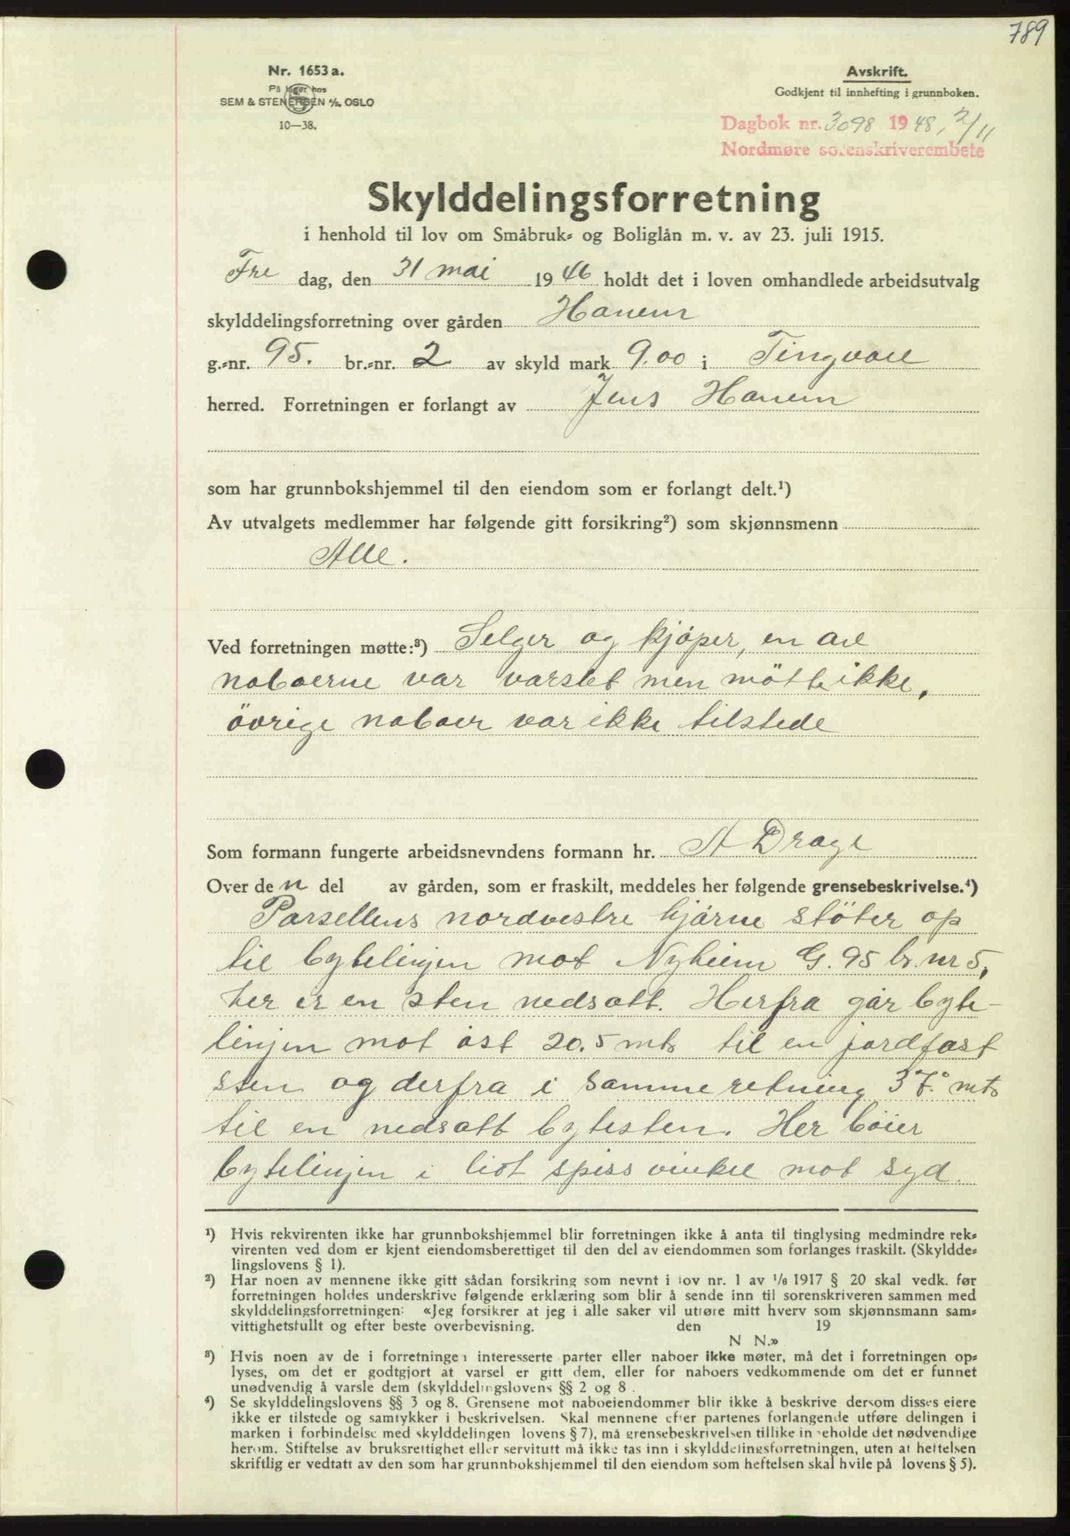 789
Nr. 1653 a.
På lager hos
SEM & STENERSEN A/S. OSLO
10—38.
Avskrift.
Godkjent til innhefting i grunnboken.
Dagbok nr. 3098 1948, 2/11
Nordmøre sorenskriverembete
Skylddelingsforretning
i henhold til lov om Småbruk- og Boliglån m. v. av 23. juli 1915.
Fre dag, den 31 mai 1946 holdt det i loven omhandlede arbeidsutvalg
skylddelingsforretning over gården Hanem
g.-nr. 95. br.-nr. 2 av skyld mark 9.00 i Tingvoll
herred. Forretningen er forlangt av Jens Hanem
som har grunnbokshjemmel til den eiendom som er forlangt delt.¹)
Av utvalgets medlemmer har følgende gitt forsikring²) som skjønnsmenn
Alle.
Ved forretningen møtte:³) Selger og kjøper, en av
naboerne var varslet men mötte ikke,
övrige naboer var ikke tilstede
Som formann fungerte arbeidsnevndens formann hr. A Drage
Over den del av gården, som er fraskilt, meddeles her følgende grensebeskrivelse.⁴)
Parsellens nordvestre hjørne stöter op
til bytelinjen mot Nyheim G. 95 br. nr 5,
her er en sten nedsatt. Herfra går byte-
linjen mot öst 20.5 mts til en jordfast
sten og derfra i samme retning 37.° mts
til en nedsatt bytesten. Her böier
bytelinjen i lidt spiss vinkel mot syd.
¹) Hvis rekvirenten ikke har grunnbokshjemmel blir forretningen ikke å anta til tinglysing medmindre rek-
virenten ved dom er kjent eiendomsberettiget til den del av eiendommen som forlanges fraskilt. (Skyldde-
lingslovens § 1).
²) Har noen av mennene ikke gitt sådan forsikring som nevnt i lov nr. 1 av 1/6 1917 § 20 skal vedk. før
forretningen holdes underskrive følgende erklæring som blir å sende inn til sorenskriveren sammen med
skylddelingsforretningen: «Jeg forsikrer at jeg i alle saker vil utføre mitt hverv som skjønnsmann sam-
vittighetsfullt og efter beste overbevisning. den 19
N N.»
³) Hvis noen av de i forretningen interesserte parter eller naboer ikke møter, må det i forretningen op-
lyses, om det er godtgjort at varsel er gitt dem, eller for naboers vedkommende om det er funnet
unødvendig å varsle dem (skylddelingslovens §§ 2 og 8.
⁴) Se skylddelingslovens §§ 3 og 8. Grensene mot naboeiendommer blir ikke å beskrive dersom disses eiere
ikke er tilstede og samtykker i beskrivelsen. Skal mennene efter partenes forlangende utføre delingen i
marken i forbindelse med skylddelingen lovens § 7), må grensebeskrivelsen tillike inneholde det nødvendige
herom. Stiftelse av bruksrettighet eller servitutt må ikke tas inn i skylddelingsforretningen, uten at heftelsen
skriftlig er vedtatt av den som har grunnbokshjemmel til den eiendom som heftelsen skal hvile på lovens § 5).